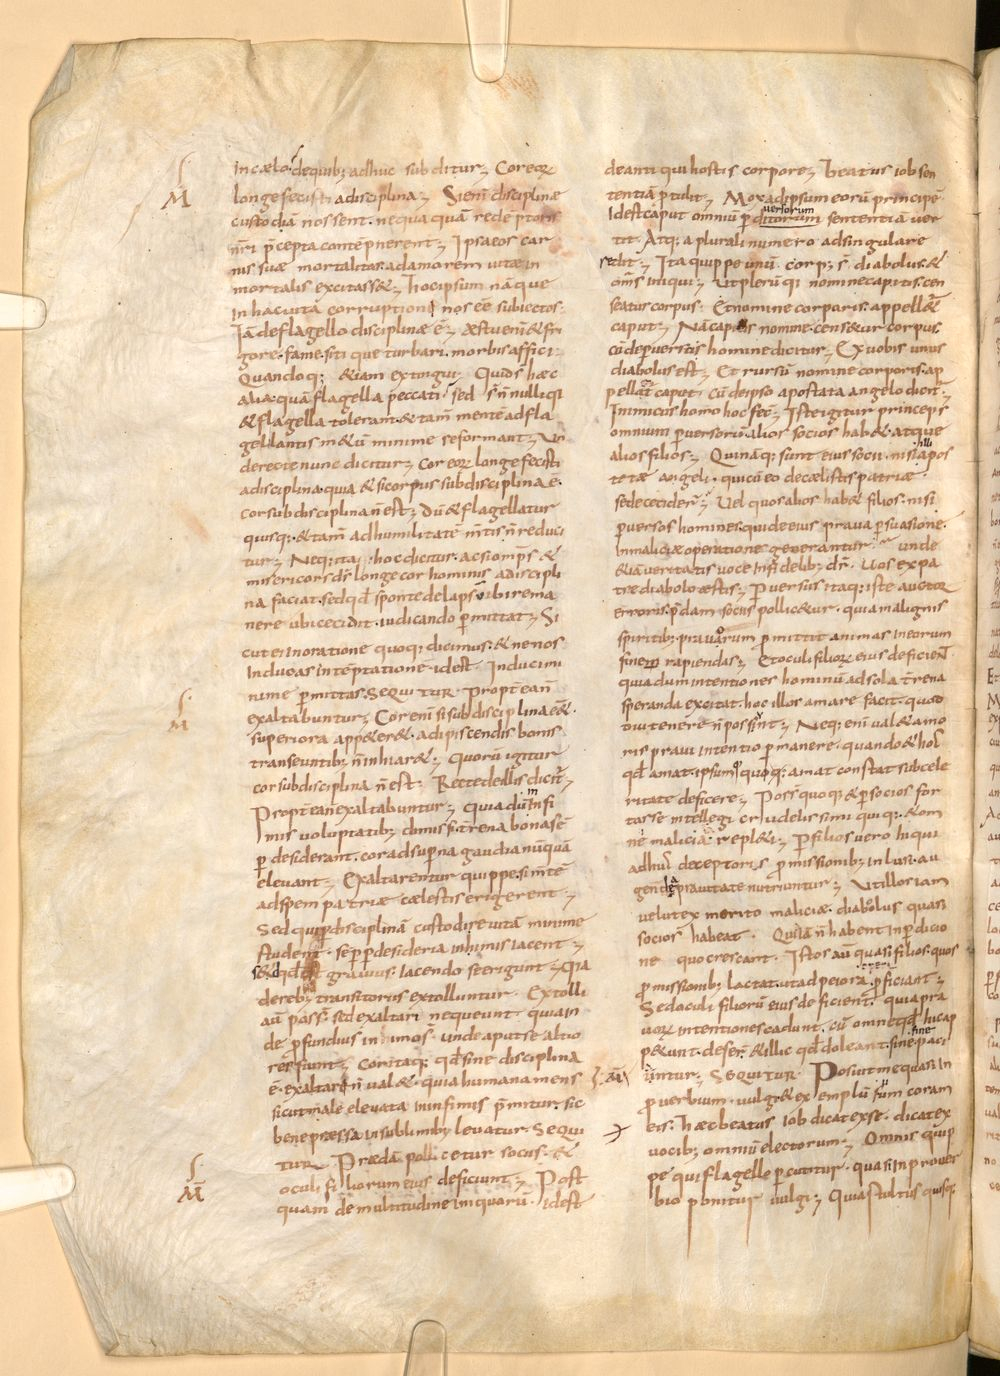 In cælo· dequib; adhuc subditur;, Cor eoꝝ
longe fecisti adisciplina;, Si eni̅ disciplinæ
custodiā nossent· nequaquā redēptoris
nr̅i p̅cepta contēpnerent;, Ipsa eos car
nis suæ mortalitas· ad amorem uitæ in
mortalis excitass&;, hoc ipsum nāque
In hac uita corruptioni nos eē subiectos·
Iā deflagello disciplinæ ē;, æstu eni̅ & fri
gore· fame· siti que turbari· morbis affici·
Quandoq; &iam extingui· Quid s̄ hæc
alia quā flagella peccati· sed s̄ n̄ nulli qi
& flagella tolerant· & tam̄ mentē ad fla
gellantis m&ū minime reformant;, Un
de recte nunc dicitur;, Cor eoꝝ longe fecisti
adisciplina· quia & si corpus sub disciplina ē·
cor sub disciplina n̄ est;, Dū & flagellatur
quisq;· & tam̄ ad humilitatē m̄tis n̄ reduci
tur;, Neq; ita hoc dicitur· ac si omp̄s &
misericors ds̄ longe cor hominis a discipli
na faciat· sed qd̄ sponte delapsū ibi rema
nere ubi cecidit· iudicando p̱mittat;, Si
cut et In oratione quoq; dicimus· & ne nos
Inducas in tēptatione· id est· Induci mi
nime p̱mittas· SEQUITUR· Propt̄ ea n̄
exaltabuntur;, Cor eni̅ si sub disciplina ē&·
superiora app&er&· adipiscendis bonis
transeuntib; n̄ inhiar&;, Quorū igitur
cor sub disciplina n̄ est· Recte de illis dicit̄;,
Propt̄ ea n̄ exaltabuntur;, Quia dum infi
mis uoluptatib; dimissi· t̄rena bona sē
p̱ desiderant· cor ad sup̱na gaudia nūquā
eleuant;, Exaltarentur quippe· si mtē
ad spem patriæ cælestis erigerent·;,
Sed qui p̱ disciplinā custodire uitā minime
student· sēp̱ p̱ desideria in imis iacent·;,
s& qd̄ ē grauius· Iacendo se erigunt·;, Quia
de reb; transitoriis extolluntur· Extolli
aū poss̄· sed exaltari nequeunt· quia in
de p̱fundius in imos· unde aput se altio
res fiunt;, Cor itaq; qd̄ sine disciplina
ē· exaltari n̄ val&· quia humana mens
sicut male eleuata in infimis p̱mitur· sic
bene pressa in sublimib; leuatur· SEQUI
TUR· Prædā pollicetur sociis· &
oculi filiorum eius deficiunt;, Post
quam de multitudine iniquorū· id est
de antiqui hostis corpore;, beatus iob sen
tentiā ptulit;, Mox ad ipsum eorū principē
Id est caput omniū p̱ditorum sententiā uer
uersorum
tit· Atq; a plurali numero ad singulare
redit·;, Ita quippe unū corp; s̄ diabolus· &
om̄s iniqui;, Ut plerūqi nomine capitis cen
seatur corpus· Et nomine corporis appell&̄
caput;, Nā capitis nomine· cens&ur corpus·
cū de p̱uersis homine dicitur;, Ex uobis unus
diabolus est;, Et rursū nomine corporis ap
pellat̄ caput· cū de ipso apostata angelo dicit̄·
Inimicus homo hoc fec̄;, Iste igitur princeps
omnium p̱uersorū· alios socios hab&· atque
alios filios;, Qui nāq; sunt eius socii· nisi apos
illi
tatæ angeli· qui cū eo de cælestis patriæ
sede cecider̄·;, Uel quos alios hab& filios· nisi
p̱uersos homines· qui de eius praua p̱suasione·
In maliciæ operatione generantur·;, unde
&iā ueritatis uoce Infidelib; dr̄· Uos ex pa
tre diabolo æstis;, P̱uersus itaq; iste auctor
erroris p̱dam sociis pollic&ur· quia malignis
spiritib; prauorum p̱mittit animas in eorum
finem rapiendas;, Et oculi filioꝝ eius deficien̄t·
quia dum intentiones hominū ad sola t̄rena
speranda excitat· hoc illos amare facit· quod
diu tenere n̄ possint;, Neq; eni̅ val& amo
ris praui intentio p̱manere· quando & hoc
qd̄ amat· ipsum quoq; amat constat sub cele
ritate deficere;, Poss quoq; & p̱ socios for
tasse intellegi crudelissimi quiq;· & om
ne malicia repl&i;, P̱ filios uero hi qui
adhuc deceptoris p̱missionib; inlusi· au
gende prauitate nutriuntur;, Ut illos iam
uelut ex merito maliciæ· diabolus quasi
socios habeat· Qui iā n̄ habent in p̱dicio
ne quo crescant· Istos aū quasi filios· quos
p̱missionib; lactat· ut ad peiora p̱ficiant·;,
Sed oculi filiorū eius deficient· quia pra
uoꝝ intentiones cadunt· cū omne qd̄ hic ap
p&unt· deser̄· & illic qd̄ doleant· sine paci
fine
untur;, SEQUITUR· Posuit me quasi In
p̱uerbium· uulgi· & exemplū sum coram
eis· hæc beatus Iob dicat ex se· dicat ex
uocib; omniū electorum·;, Omnis quip
pe qui flagello p̱cutitur· quasi in prouer
bio ponitur uulgi;, Quia stultus quisq;